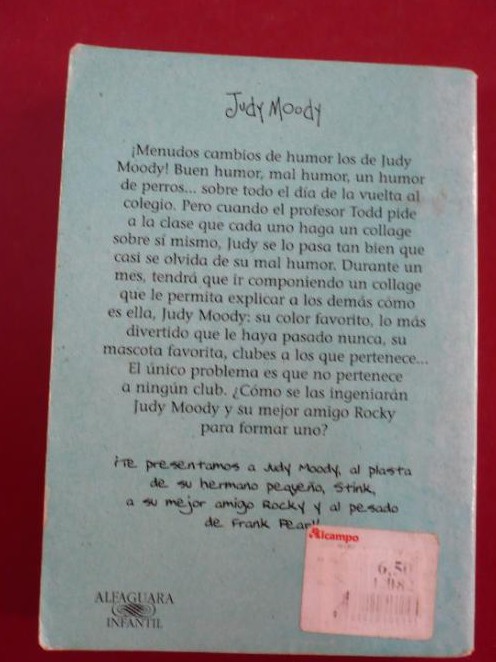 Judy Moody
¡Menudos cambios de humor los de Judy
Moody! Buen humor, mal humor, un humor
de perros... sobre todo el día de la vuelta al
colegio. Pero cuando el profesor Todd pide
a la clase que cada uno haga un collage
sobre sí mismo, Judy se lo pasa tan bien que
casi se olvida de su mal humor. Durante un
mes, tendrá que ir componiendo un collage
que le permita explicar a los demás cómo
es ella, Judy Moody: su color favorito, lo más
divertido que le haya pasado nunca, su
mascota favorita, clubes a los que pertenece...
El único problema es que no pertenece
a ningún club. ¿Cómo se las ingeniarán
Judy Moody y su mejor amigo Rocky
para formar uno?
¡Te presentamos a Judy Moody, al plasta
de su hermano pequeño, Stink,
a su mejor amigo Rocky y al pesado
de Frank Pearl!
Alcampo
6,50
ALFAGUARA
INFANTIL